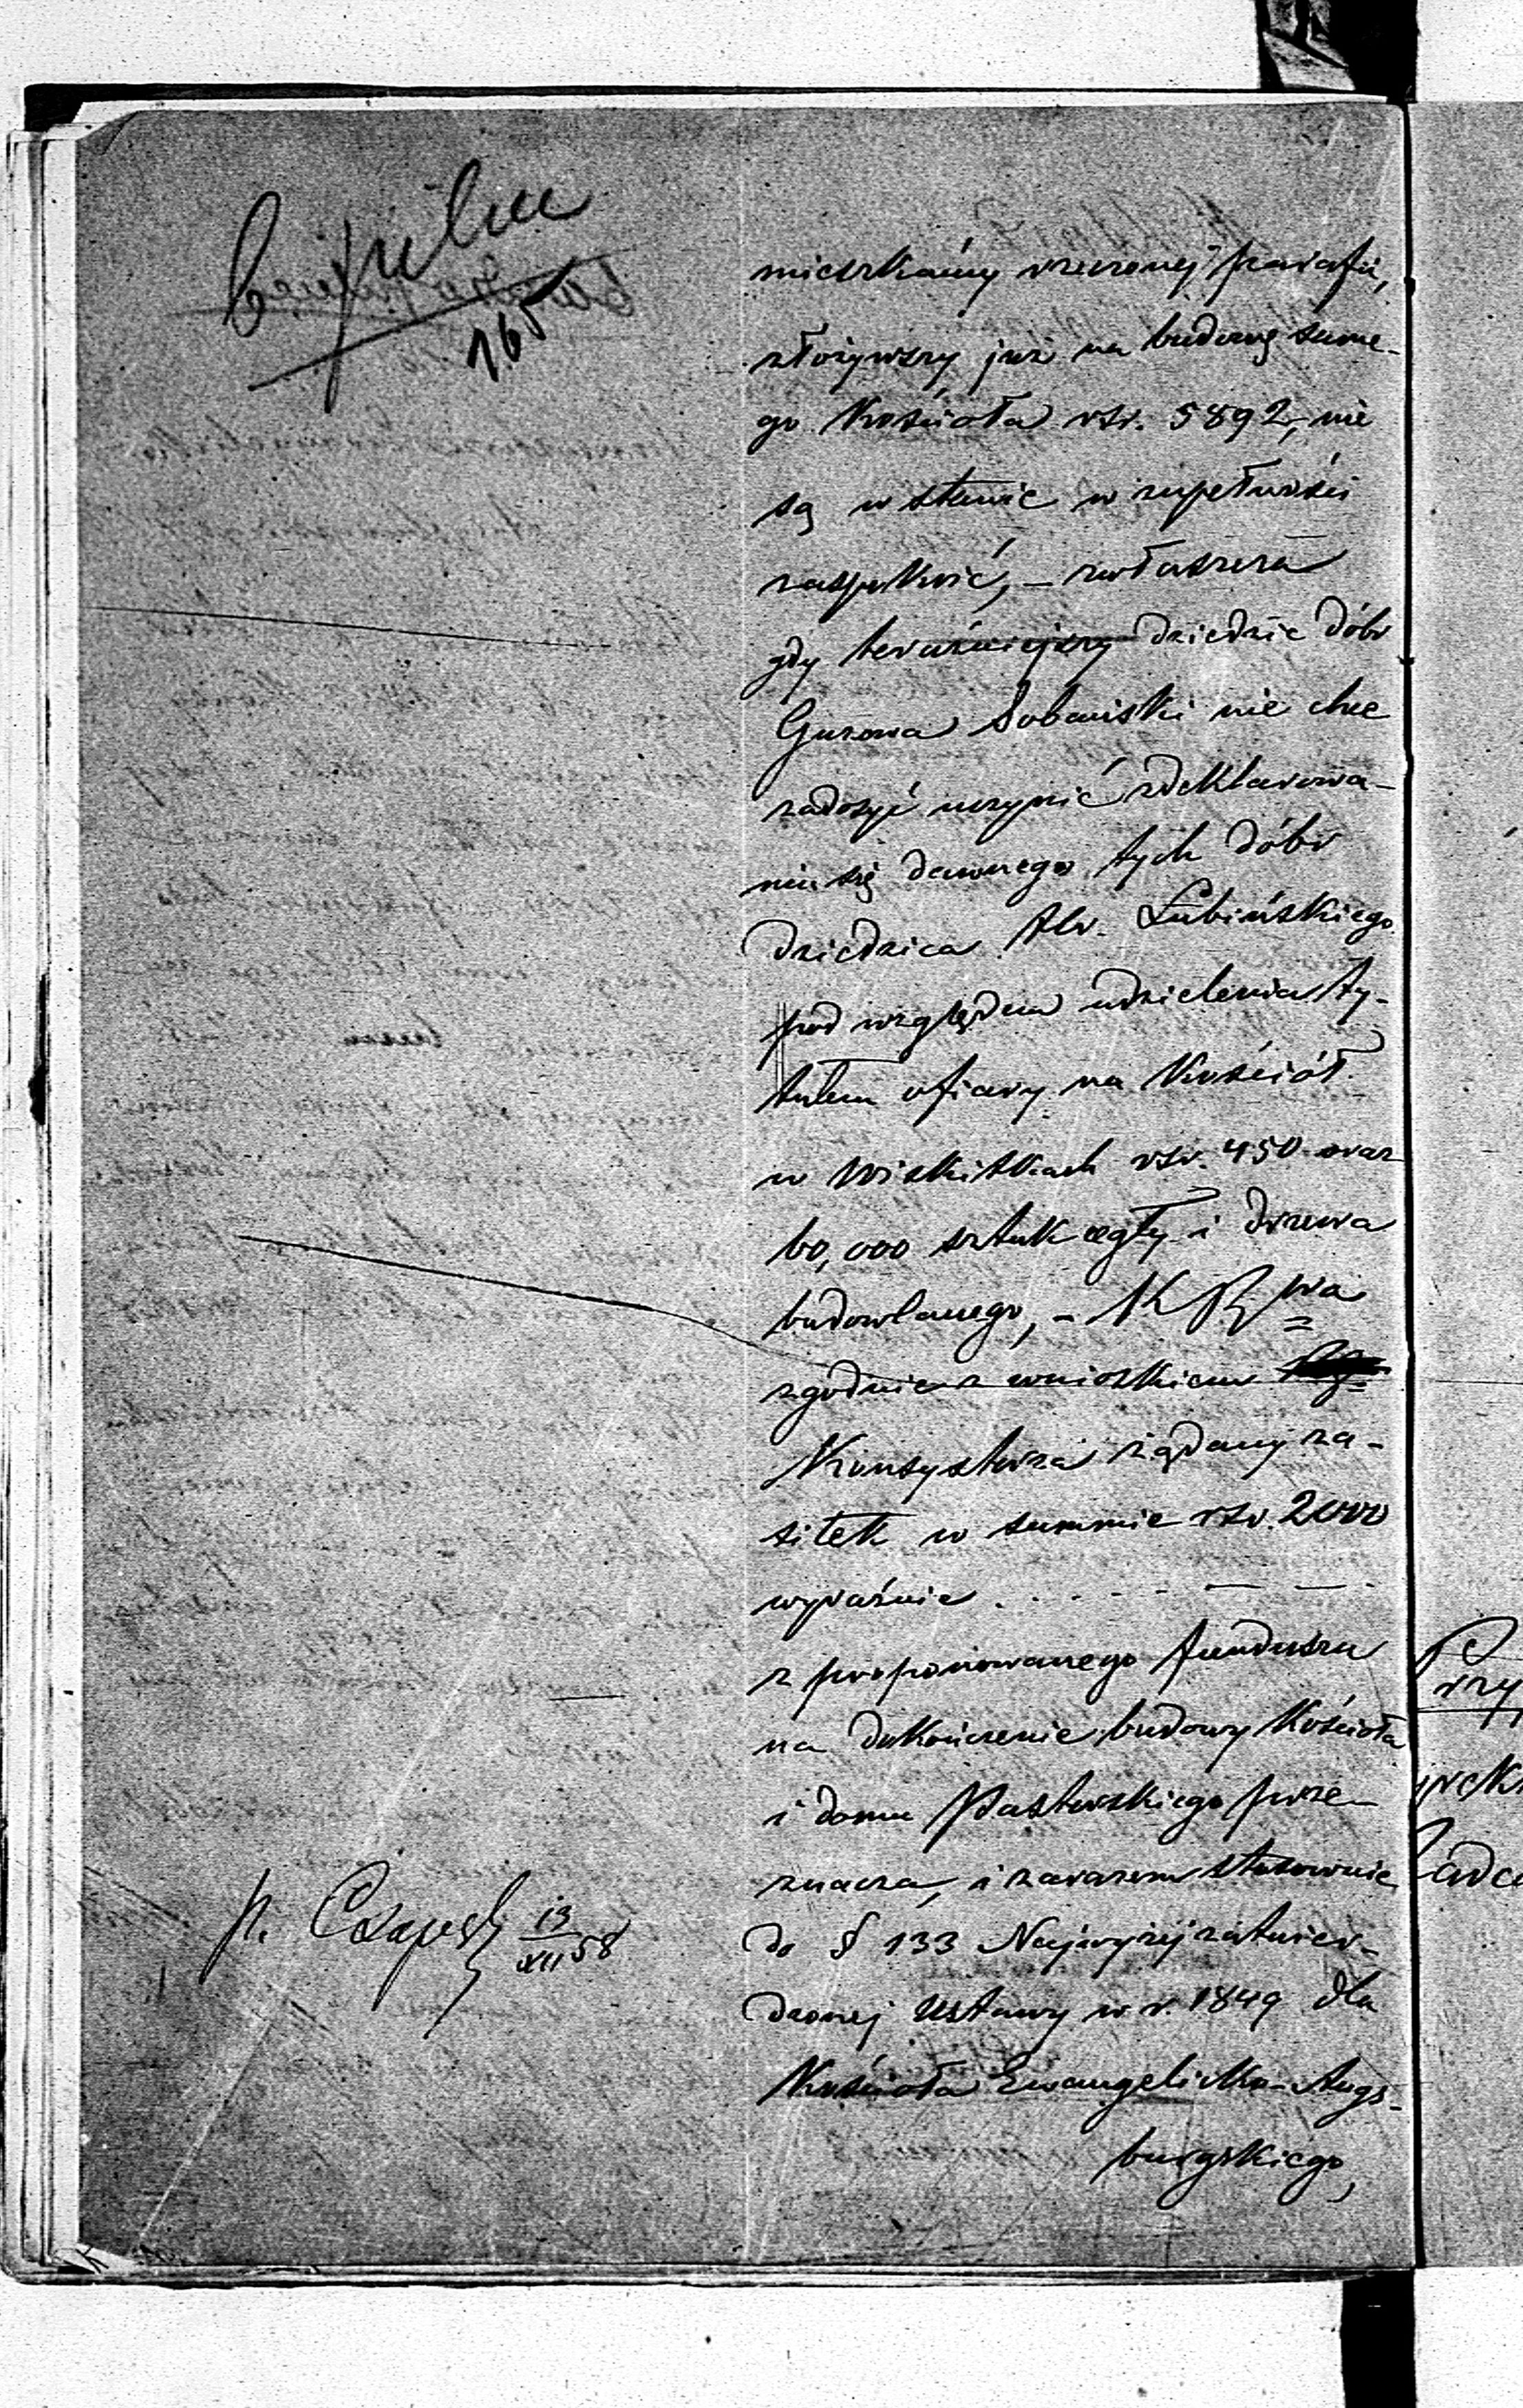 C. pilne
165
mieszkańcy rzeczonej parafii,
złożywszy już na budowę same-
go Kościoła rsr. 5892, nie
są w stanie w zupełności
zaspokoić, – zwłaszcza
gdy teraźniejszy dziedzic dóbr
Guzowa Sobański nie chce
zadosyć uczynić zdeklarowa-
niu się dawnego tych dóbr
dziedzica Hr. Łubińskiego
pod względem udzielenia ty-
tułem ofiary na Kościół
w Wiskitkach rsr. 450 oraz
60,000 sztuk cegły i drzewa
budowlanego, – K R wa
zgodnie z wnioskiem
Konsystorza żądany za-
siłek w summie rsr. 2000
wyraźnie . . . . – – –
z proponowanego funduszu
na dokończenie budowy Kościoła
i domu Pastorskiego prze-
znacza, i zarazem stosownie
do § 133 Najwyżej zatwier-
dzonej Ustawy w r. 1849 dla
Kościoła Ewangelicko-Augs-
burgskiego,
p. 13/XII 58